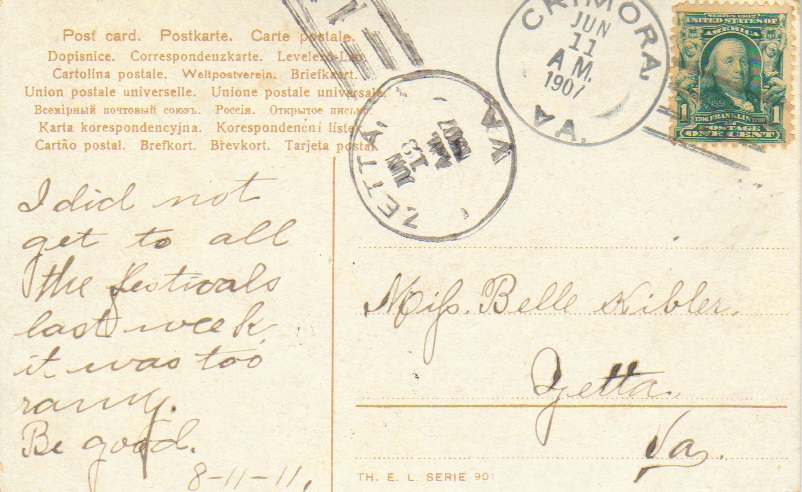 Post card. Postkarte. Carte postale.
Dopisnice. Correspondenzkarte. Levelező-Lap.
Cartolina postale. Weltpostverein. Briefkaart.
Union postale universelle. Unione postale universale.
Всемірный почтовый союзъ. Россія. Открытое письмо.
Karta korespondencyjna. Korespondenční listek.
Cartão postal. Brefkort. Brevkort. Tarjeta postal
1
CRIMORA, VA.
JUN
11
A.M.
1907
ZETTA, VA
JUN
13
AM
1907
SERIES 1902
UNITED STATES OF
AMERICA
1706 FRANKLIN 1790
1 POSTAGE 1
ONE CENT
I did not
get to all
the festivals
last week
it was too
rainy.
Be good.
8-11-11,
Miss. Belle Kibler.
Zetta.
Va.
TH. E. L. SERIE 901